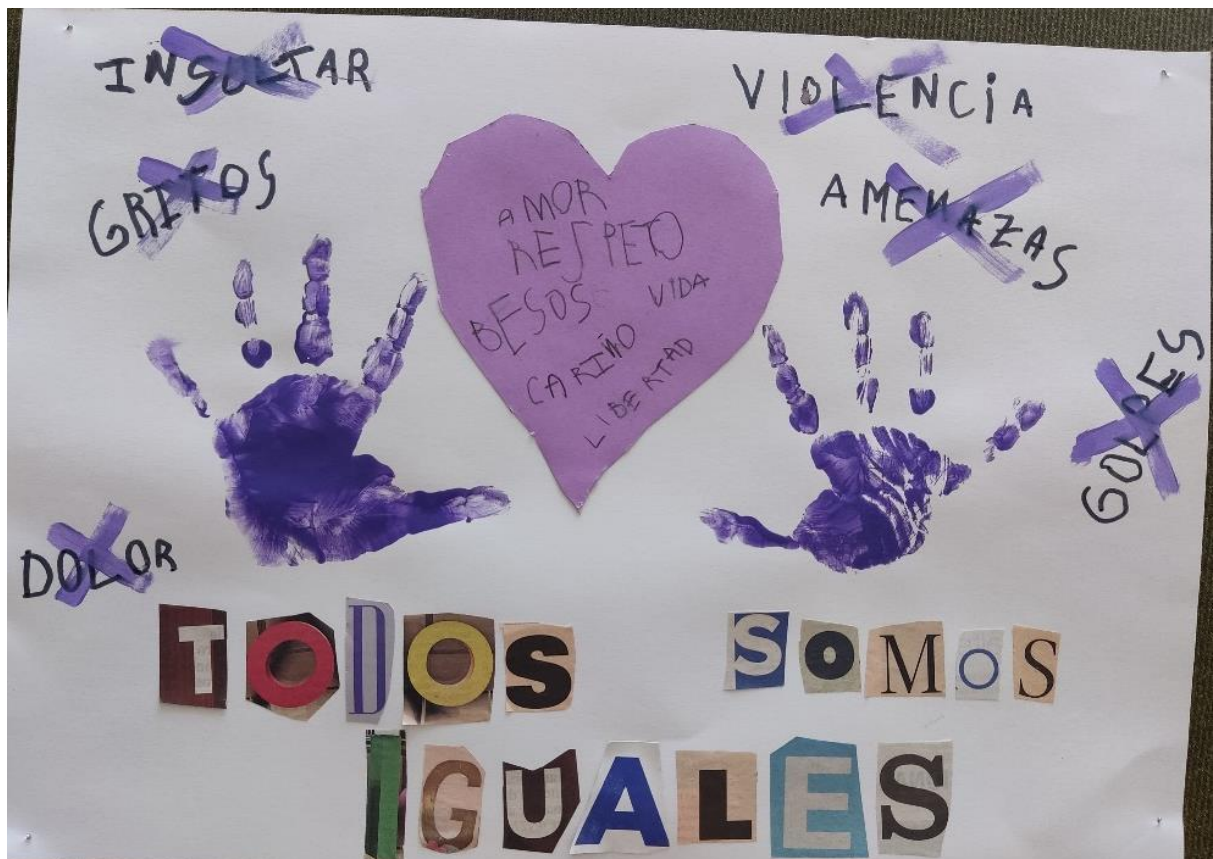 INSULTAR
VIOLENCIA
GRITOS
AMENAZAS
AMOR
RESPETO
BESOS VIDA
CARIÑO
LIBERTAD
GOLPES
DOLOR
TODOS SOMOS
IGUALES